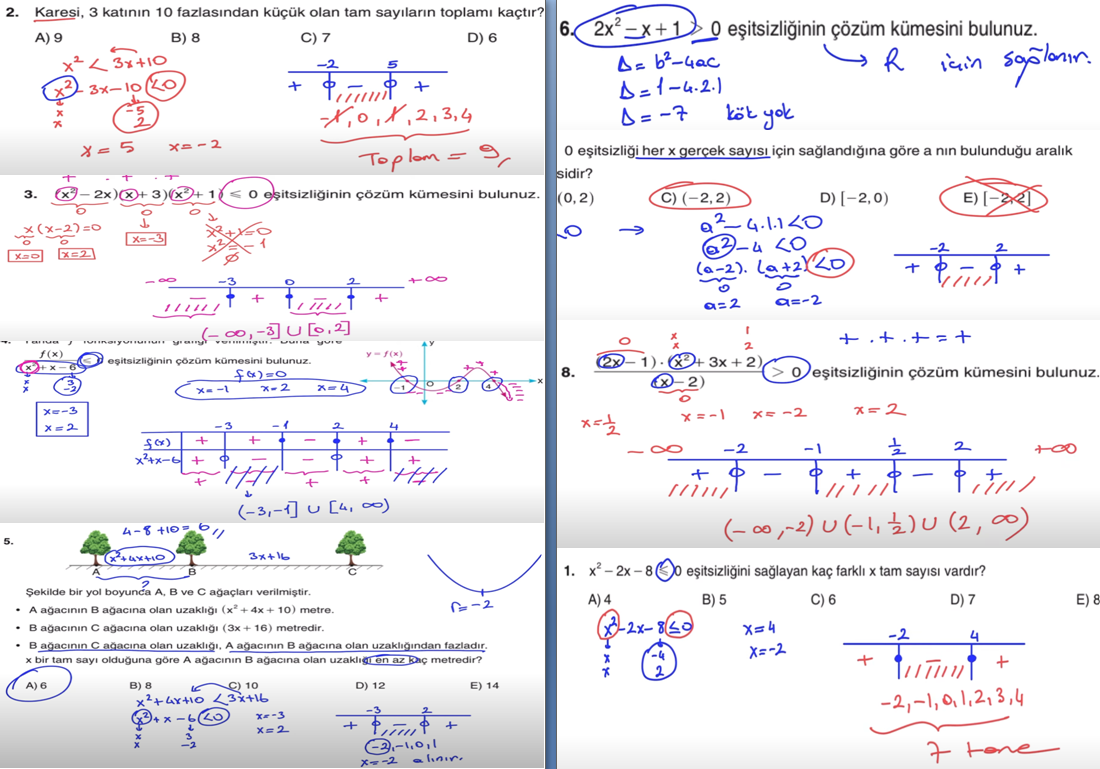 2. Karesi, 3 katının 10 fazlasından küçük olan tam sayıların toplamı kaçtır?
A) 9 B) 8 C) 7 D) 6
x² < 3x+10
x² - 3x - 10 < 0
x x
-5 2
x = 5 x = -2
-2 5
+ - +
-1, 0, 1, 2, 3, 4
Toplam = 9
3. (x² - 2x)(x + 3)(x² + 1) ≤ 0 eşitsizliğinin çözüm kümesini bulunuz.
x(x-2)=0
x=0 x=2
x=-3
x²+1=0
x²=-1
∅
-∞ -3 0 2 +∞
- + - +
(-∞, -3] ∪ [0, 2]
f(x)
x² + x - 6 ≤ 0 eşitsizliğinin çözüm kümesini bulunuz.
x x
3 -2
x=-3
x=2
f(x)=0
x=-1 x=2 x=4
y = f(x)
y
-1 O 2 4 x
-3 -1 2 4
f(x) + + - + -
x²+x-6 + - - + +
+ + +
(-3,-1] ∪ [4, ∞)
5.
4-8+10=6
x²+4x+10 3x+16
A B C
?
Şekilde bir yol boyunca A, B ve C ağaçları verilmiştir.
• A ağacının B ağacına olan uzaklığı (x² + 4x + 10) metre.
• B ağacının C ağacına olan uzaklığı (3x + 16) metredir.
• B ağacının C ağacına olan uzaklığı, A ağacının B ağacına olan uzaklığından fazladır.
x bir tam sayı olduğuna göre A ağacının B ağacına olan uzaklığı en az kaç metredir?
A) 6 B) 8 C) 10 D) 12 E) 14
r=-2
x²+4x+10 < 3x+16
x² + x - 6 < 0
x x
3 -2
x=-3
x=2
-3 2
+ - +
-2, -1, 0, 1
x=-2 alınır.
6. 2x² - x + 1 > 0 eşitsizliğinin çözüm kümesini bulunuz.
→ R için sağlanır.
Δ = b²-4ac
Δ = 1-4.2.1
Δ = -7 kök yok
0 eşitsizliği her x gerçek sayısı için sağlandığına göre a nın bulunduğu aralık
sidir?
(0, 2) C) (-2, 2) D) [-2, 0) E) [-2, 2]
<0 → a²-4.1.1<0
a²-4 <0
(a-2).(a+2)<0
0 0
a=2 a=-2
-2 2
+ - +
+ . + . + = +
8. (2x - 1) · (x² + 3x + 2)
(x - 2)
> 0 eşitsizliğinin çözüm kümesini bulunuz.
x=1/2 x=-1 x=-2 x=2
-∞ -2 -1 1/2 2 +∞
+ - + - +
(-∞,-2) ∪ (-1, 1/2) ∪ (2, ∞)
1. x² - 2x - 8 ≤ 0 eşitsizliğini sağlayan kaç farklı x tam sayısı vardır?
A) 4 B) 5 C) 6 D) 7 E) 8
x²-2x-8≤0
x x
-4 2
x=4
x=-2
-2 4
+ - +
-2,-1,0,1,2,3,4
7 tane